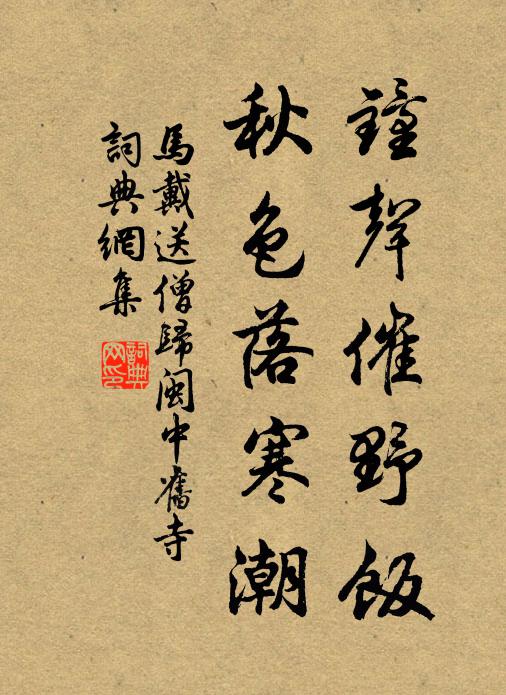 鐘聲催野飯
秋色落寒潮
馬戴送僧歸閩中舊寺
詞典網集
詞典网印